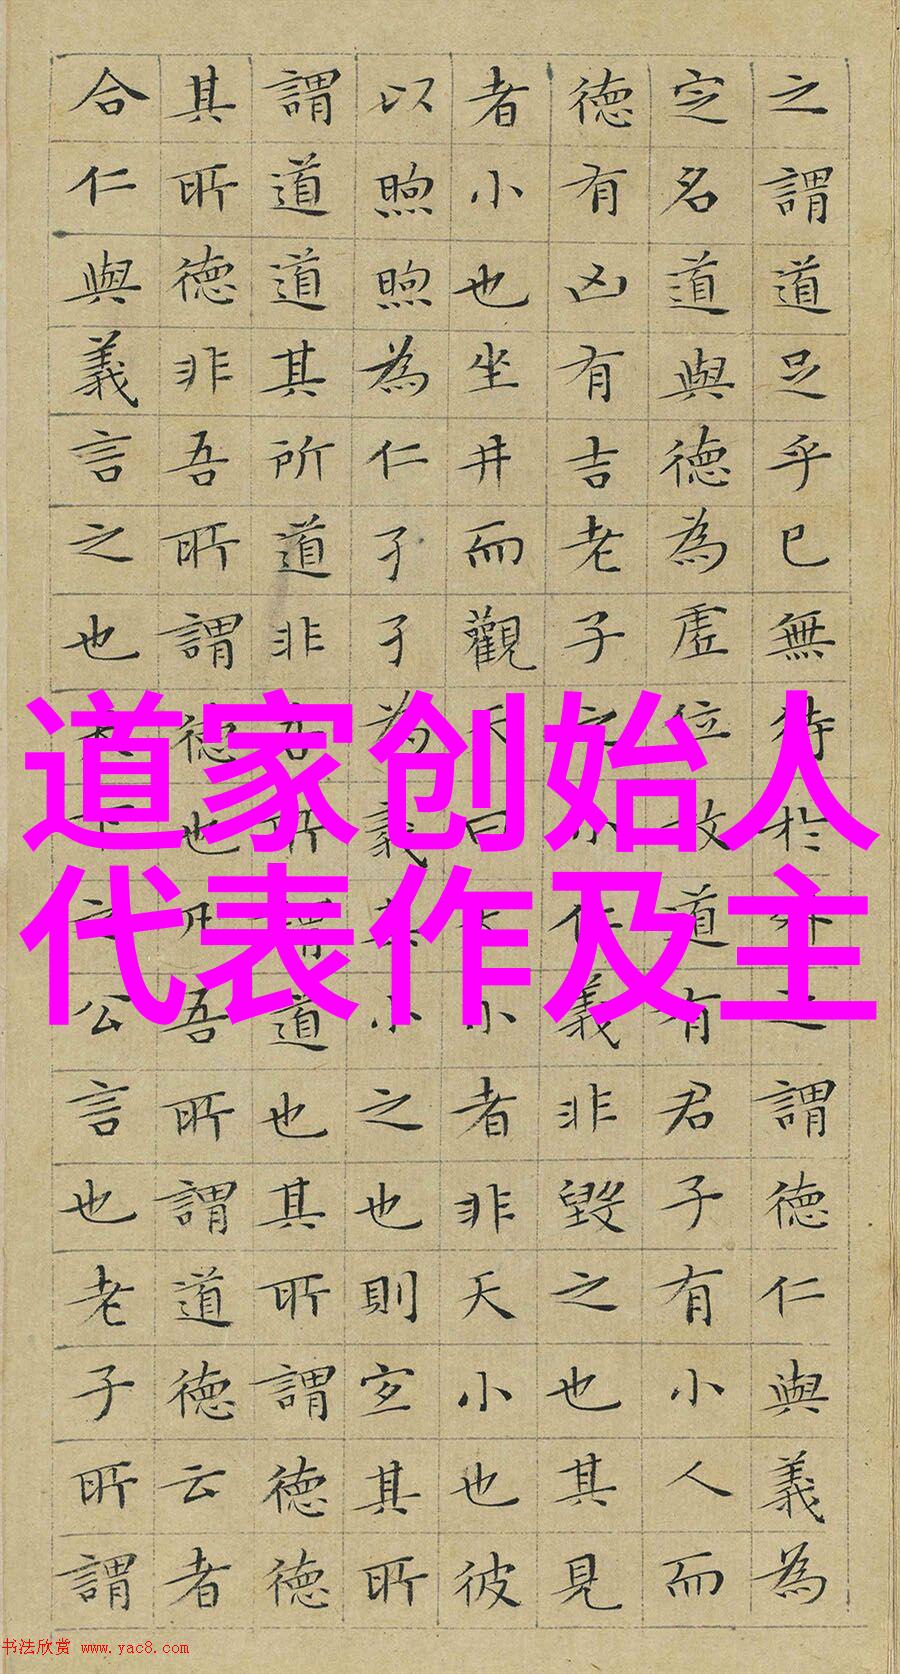 之謂道足乎己無待於外之謂德仁與義為
定名道與德為虛位故道有君子有小人而
德有凶有吉老子之小仁義非毀之也其見
者小也坐井而觀天曰天小者非天小也彼
以煦煦為仁孑孑為義其小之也則宜其所
謂道道其所道非吾所謂道也其所謂德德
其所德非吾所謂德也凡吾所謂道德云者
合仁與義言之也天下之公言也老子所謂
道家创始人
代表作及主
书法欣赏 www.yac8.com